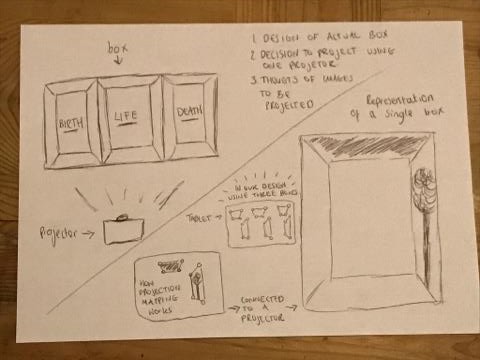 box
BIRTH
LIFE
DEATH
Projector →
1. DESIGN OF ACTUAL BOX
2. DECISION TO PROJECT USING
ONE PROJETOR
3. THOUGTS OF IMAGES
TO BE
PROJECTED
Representation
of a single box
IN OUR DESIGN
USING THREE
TABLET →
HOW
PROJECTION
MAPPING
WORKS
→ CONNECTED →
TO A
PROJECTOR